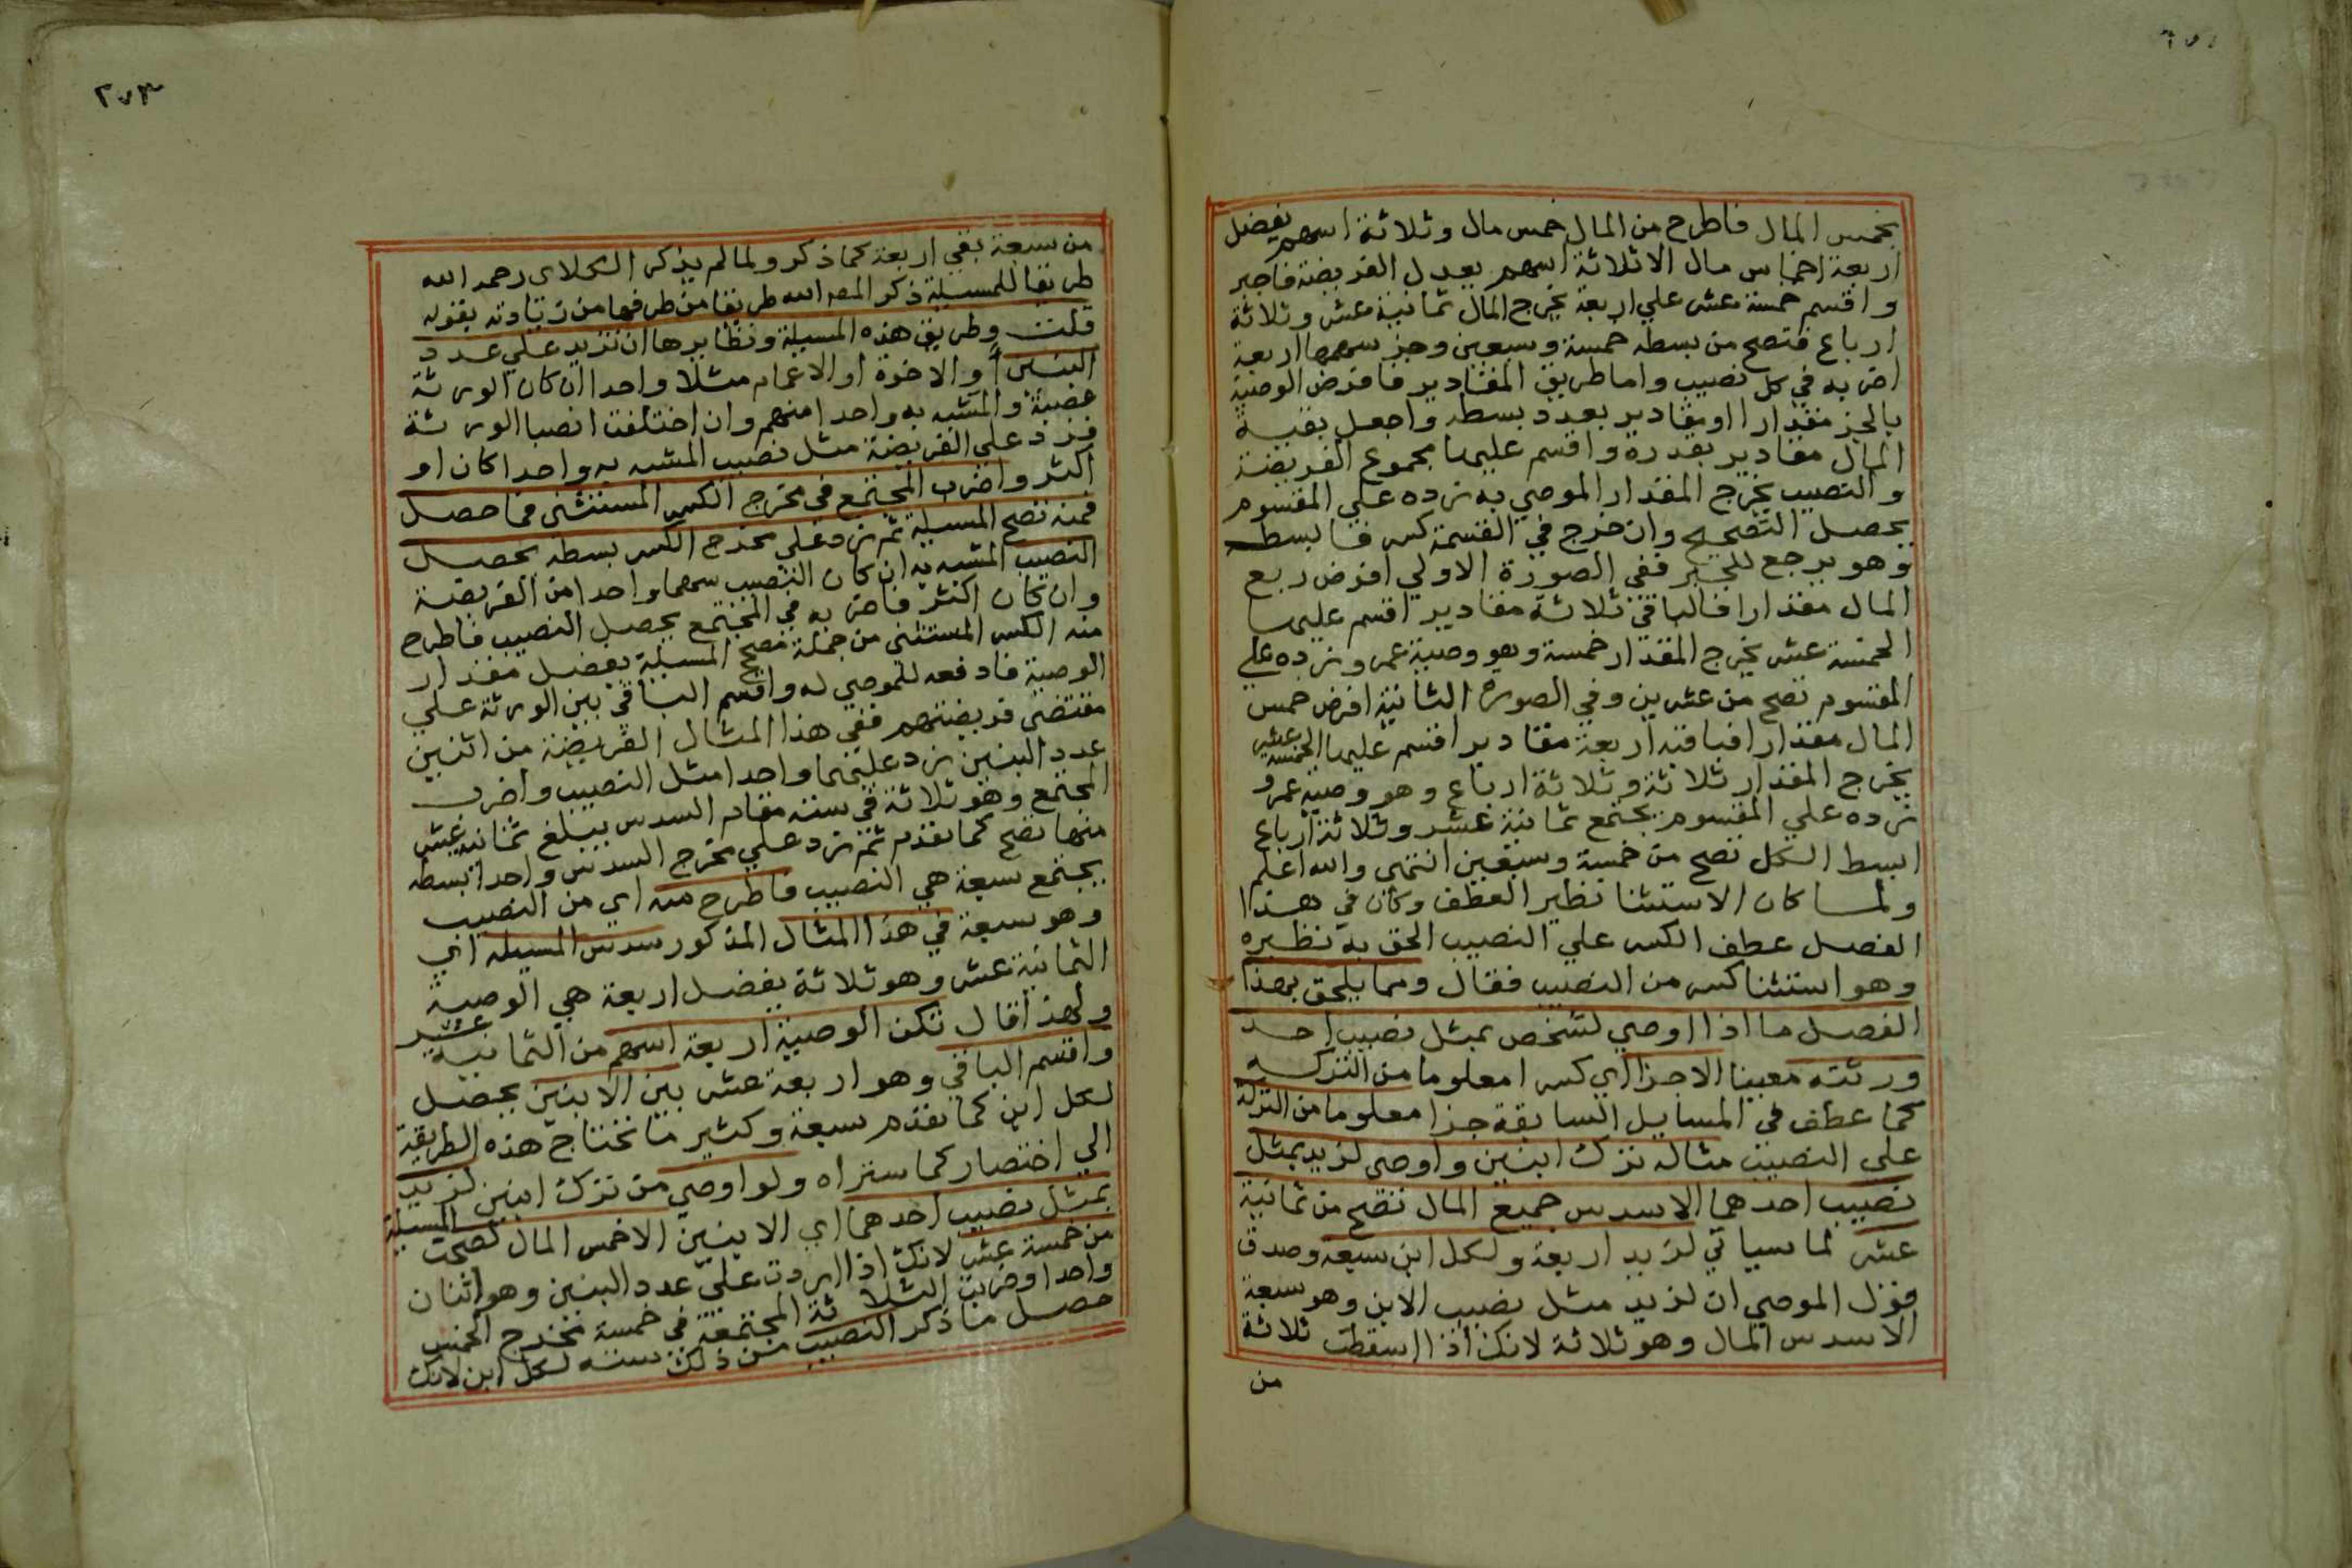 بخمس المال فاطرح من المال خمس مال وثلاثة اسهم يفضل
اربعة اخماس مال الا ثلاثة اسهم يعدل الفريضة فاجبر
واقسم خمسة عشر علي اربعة يخرج المال ثمانية عشر وثلاثة
ارباع فتصح من بسطه خمسة وسبعين وجز سهمها اربعة
اضربه في كل نصيب واما طريق المقادير فافرض الوصية
بالجز مقدارا او مقادير بعدد بسطه واجعل بقية
المال مقادير بقدره واقسم عليها مجموع الفريضة
والنصيب يخرج المقدار الموصي به زده علي المقسوم
يحصل التصحيح وان خرج في القسمة كسر فابسطه
وهو يرجع للجبر ففي الصورة الاولي افرض ربع
المال مقدارا فالباقي ثلاثة مقادير اقسم عليها
الخمسة عشر يخرج المقدار خمسة وهو وصية عمرو زده علي
المقسوم تصح من عشرين وفي الصورة الثانية افرض خمس
المال مقدارا فباقيه اربعة مقادير اقسم عليها الخمسة عشر
يخرج المقدار ثلاثة وثلاثة ارباع وهو وصية عمرو
زده علي المقسوم يجتمع ثمانية عشر وثلاثة ارباع
ابسط الكل تصح من خمسة وسبعين انتهى والله اعلم
ولما كان الاستثنا نظير العطف وكان في هذا
الفصل عطف الكسر علي النصيب الحق به نظيره
وهو استثنا كسر من النصيب فقال ومما يلحق بهذا
الفصل ما اذا اوصي لشخص بمثل نصيب احد
ورثته معينا الا جزا اي كسرا معلوما من التركه
كما عطف في المسايل السابقة جزا معلوما من التركة
علي النصيب مثاله ترك ابنين واوصي لزيد بمثل
نصيب احدهما الا سدس جميع المال تصح من ثمانية
عشر لما سياتي لزيد اربعة ولكل ابن سبعة وصدق
قول الموصي ان لزيد مثل نصيب الابن وهو سبعة
الا سدس المال وهو ثلاثة لانك اذا اسقطت ثلاثة
من
٢٧٣
من سبعة بقي اربعة كما ذكر ولما لم يذكر الكلاي رحمه الله
طريقا للمسيلة ذكر المص الله طريقا من طرفها من زيادته بقوله
قلت وطريق هذه المسيلة ونظايرها ان تزيد علي عدد
البنين او الاخوة او الاعمام مثلا واحدا ان كان الورثة
عصبة والمشبه به واحدا منهم وان اختلفت انصبا الورثة
فزد علي الفريضة مثل نصيب المشبه به واحدا كان او
اكثر واضرب المجتمع في مخرج الكسر المستثنى فما حصل
فمنه تصح المسيلة ثم زد علي مخرج الكسر بسطه يحصل
النصيب المشبه به ان كان النصيب سهما واحدا من الفريضة
وان كان اكثر فاضربه في المجتمع يحصل النصيب فاطرح
منه الكسر المستثنى من جملة مصح المسيلة يفضل مقدار
الوصية فادفعه للموصي له واقسم الباقي بين الورثة علي
مقتضى فريضتهم ففي هذا المثال الفريضة من اثنين
عدد البنين زد عليهما واحدا مثل النصيب واضرب
المجتمع وهو ثلاثة في ستة مقام السدس يبلغ ثمانية عشر
منها تصح كما تقدم ثم زد علي مخرج السدس واحدا بسطه
يجتمع سبعة هي النصيب فاطرح منه اي من النصيب
وهو سبعة في هذا المثال المذكور سدس المسيله اي
الثمانية عشر وهو ثلاثة يفضل اربعة هي الوصية
ولهذا قال تكن الوصية اربعة اسهم من الثمانية عشر
واقسم الباقي وهو اربعة عشر بين الابنين يحصل
لكل ابن كما تقدم سبعة وكثير ما تحتاج هذه الطريقة
الي اختصار كما ستراه ولو اوصي من ترك ابنين لزيد
بمثل نصيب احدهما اي الابنين الا خمس المال لصحت المسيلة
من خمسة عشر لانك اذا زدت علي عدد البنين وهو اثنان
واحدا وضربت الثلاثة المجتمعة في خمسة مخرج الخمس
حصل ما ذكر النصيب من ذلك ستة لكل ابن لانك